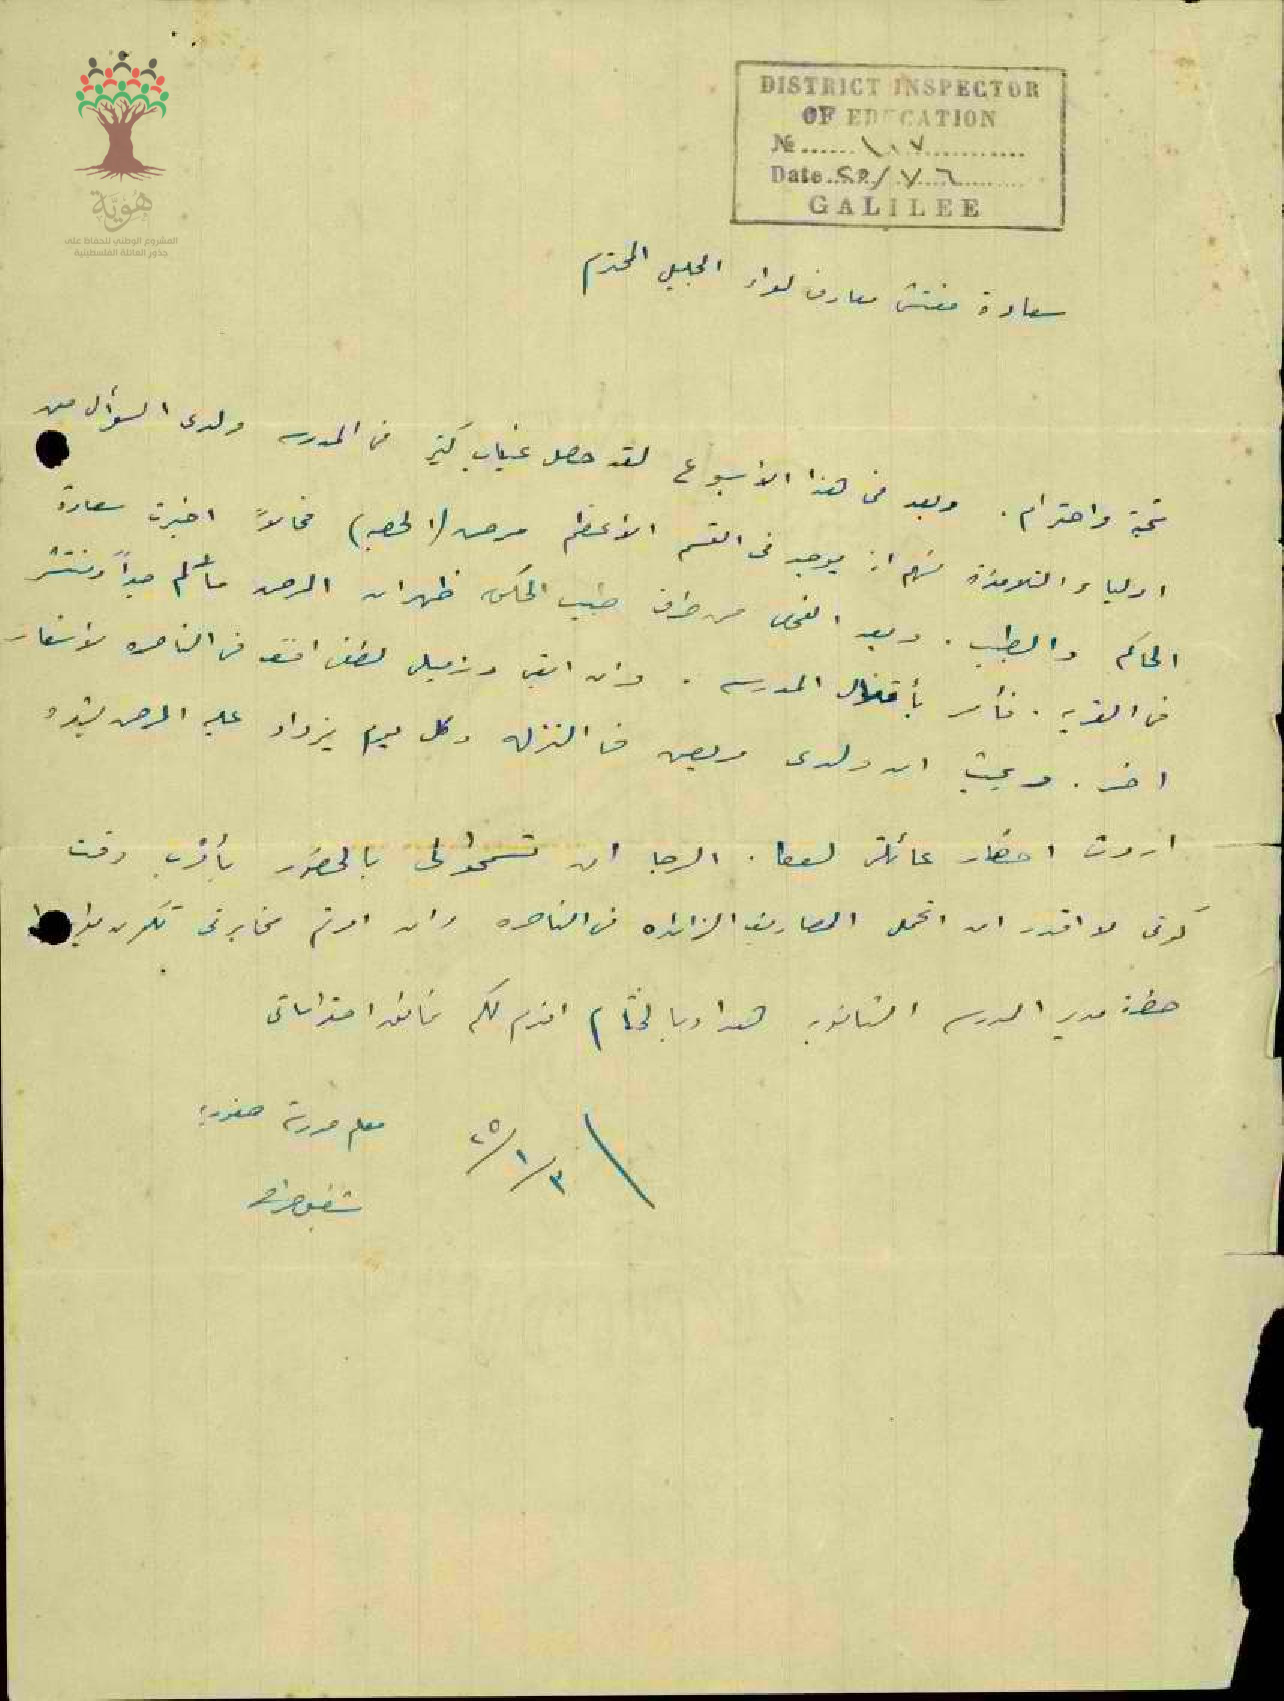 هُوِيَّة
المشروع الوطني للحفاظ على
جذور العائلة الفلسطينية
DISTRICT INSPECTOR
OF EDUCATION
№ ١٠٧
Date
GALILEE
سعادة مفتش معارف لواء الجليل المحترم
تحية واحترام. وبعد فى هذا الاسبوع لقد حصل غياب كثير فى المدرسه ولدى السؤال من
اولياء التلامذة منهم انه يوجد فى القسم الاعظم مرض (الحصبه) فحالاً اخبرت سعادة
الحاكم والطبيب. وبعد الفحص من طرف طبيب الحكومه ظهر ان المرض جداً ومنتشر
فى القريه. فأمر بأقفال المدرسه. وان ابقى وزميلى فى الناصره لأشعار
اخر. وبحيث ان ولدى مريض فى النزله وكل يوم يزداد عليه المرض بشده
اردت احضار عائلتى لهنا. الرجا ان تسمحوا لى بالحضور بأقرب وقت
كونى لا اقدر ان اتحمل المصاريف الزائده فى الناصره وان امرتم مخابرتى تكون
حضرة مدير المدرسه الثانويه هذا وبالختام اقدم لكم فائق احتراماتى
٢٥/١/٣
معلم مدرسة صفورية
شفيق